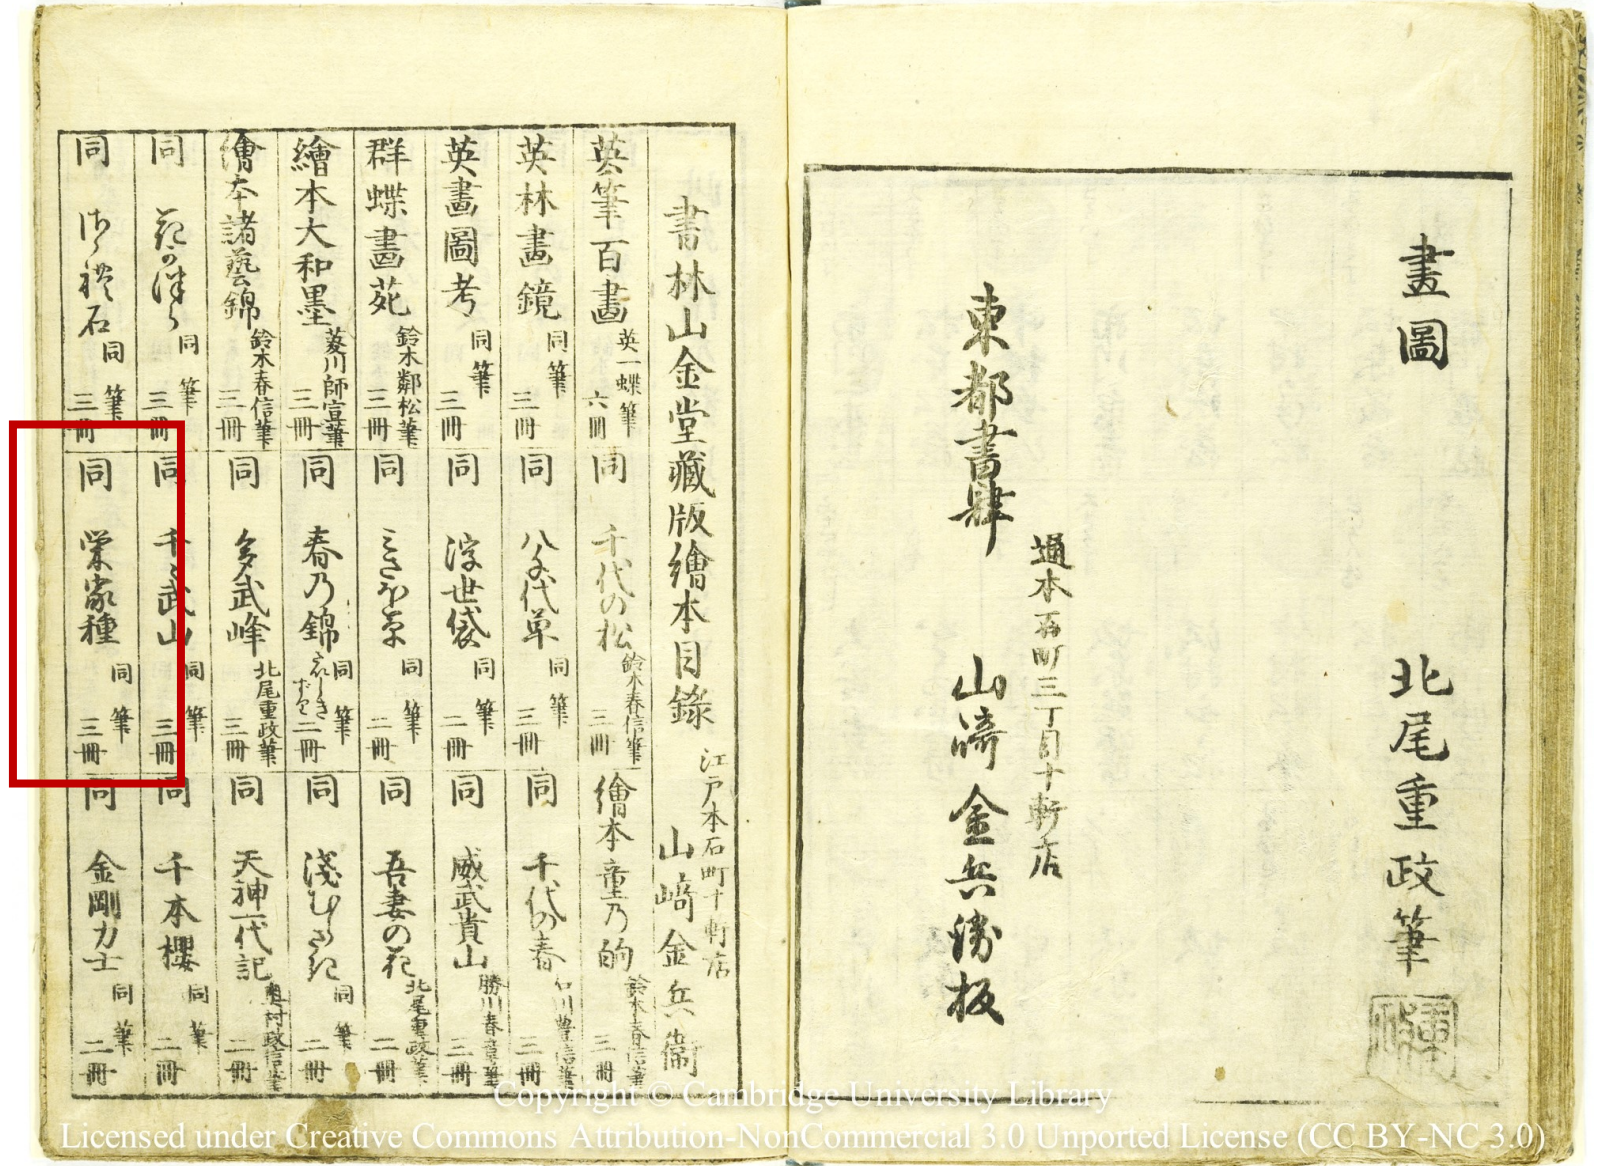 畫圖
北尾重政筆
通本石町三丁目十軒店
東都書肆 山﨑金兵衛板
書林山金堂藏版繪本目錄 江戸本石町十軒店 山﨑金兵衞
英筆百畫 英一蝶筆 六冊
同 千代の松 鈴木春信筆 三冊
繪本童乃的 鈴木春信筆 三冊
英林畫鏡 同筆 三冊
同 八千代草 同筆 三冊
同 千代の春 石川豊信筆 三冊
英畫圖考 同筆 三冊
同 浮世袋 同筆 二冊
同 威武貴山 勝川春章筆 三冊
群蝶畫苑 鈴木鄰松筆 三冊
同 みさほ草 同筆 二冊
同 吾妻の花 北尾重政筆 二冊
繪本大和墨 菱川師宣筆 三冊
同 春乃錦 同筆 二冊
同 淺むらさき 同筆 二冊
繪本諸藝錦 鈴木春信筆 三冊
同 多武峰 北尾重政筆 三冊
同 天神一代記 奥村政信筆 二冊
同 花のかつら 同筆 三冊
同 千々武山 同筆 三冊
同 千本櫻 同筆 二冊
同 同筆 三冊
同 栄家種 同筆 三冊
同 金剛力士 同筆 二冊
Copyright © Cambridge University Library
Licensed under Creative Commons Attribution-NonCommercial 3.0 Unported License (CC BY-NC 3.0)